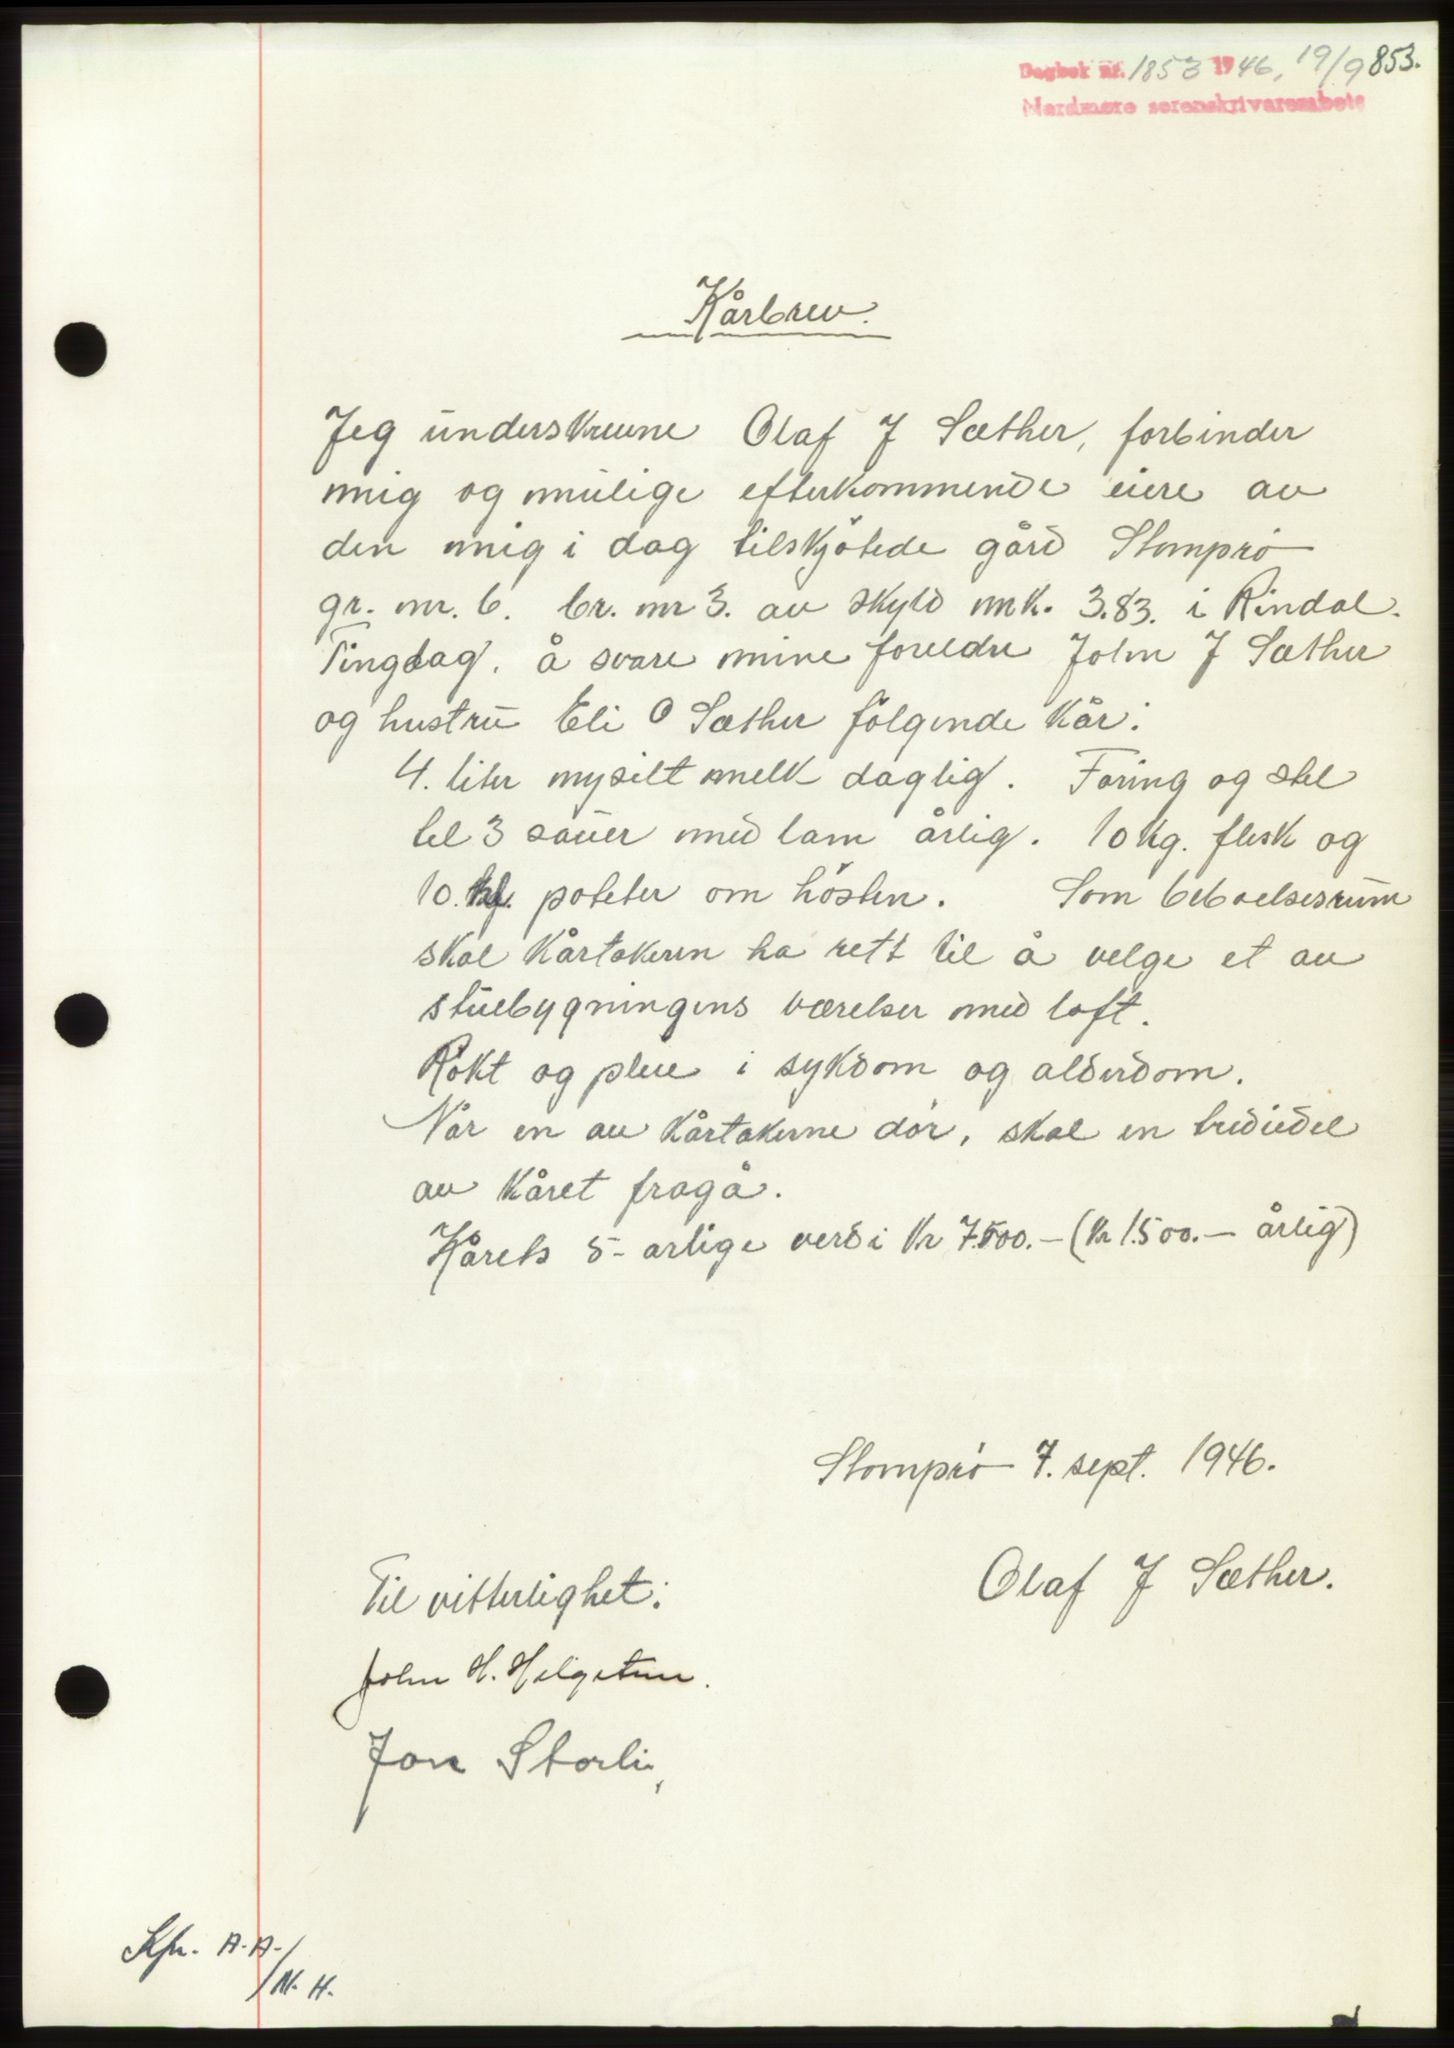 Dagbok nr. 1853 1946, 19/9 853.
Nordmøre sorenskrivarembete
Kårbrev.
Jeg underskrevne Olaf J Sæther, forbinder
mig og mulige efterkommende eiere av
den mig i dag tilskjøtede gård Stomprø
gr. nr. 6. br. nr 3. av skyld mk. 3.83. i Rindal.
Tinglag. å svare mine foreldre John J Sæther
og hustru Eli O Sæther følgende kår:
4. liter nysilt melk daglig. Foring og stel
til 3 sauer med lam årlig. 10 kg. flesk og
10. poteter om hösten. Som beboelsesrum
skal kårtakeren ha rett til å velge et av
stuebygningens værelser med loft.
Røkt og pleie i sykdom og alderdom.
Når en av kårtakerne dör, skal en tredjedel
av kåret fragå.
Kårets 5-årlige verdi kr 7.500.- (kr 1.500.- årlig)
Stomprø 7. sept. 1946.
Olaf J Sæther.
Til vitterlighet:
John H. Helgetun.
Jon Storli,
Kfr. A.A./
/N.H.